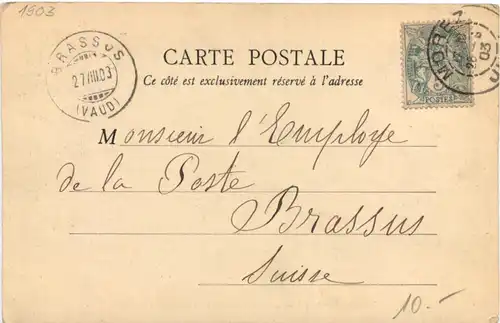 1903
BRASSUS
27.III.03
(VAUD)
CARTE POSTALE
Ce côté est exclusivement réservé à l'adresse
MOREZ
03
POSTES
Monsieur l'Employe
de la Poste
Brassus
Suisse
10.-